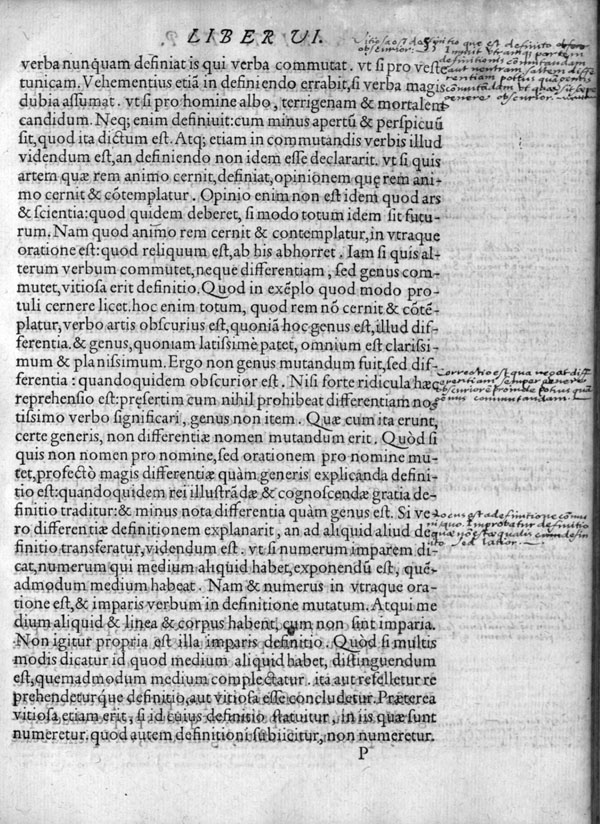 LIBER VI.
verba nunquam definiat is qui verba commutat. vt si pro veste
tunicam. Vehementius etiã in definiendo errabit, si verba magis
dubia assumat. vt si pro homine albo, terrigenam & mortalem
candidum. Neq; enim definiuit: cum minus apertũ & perspicuũ
sit, quod ita dictum est. Atq; etiam in commutandis verbis illud
videndum est, an definiendo non idem esse declararit. vt si quis
artem quæ rem animo cernit, definiat, opinionem quę rem ani-
mo cernit & cõtemplatur. Opinio enim non est idem quod ars
& scientia: quod quidem deberet, si modo totum idem sit futu-
rum. Nam quod animo rem cernit & contemplatur, in vtraque
oratione est: quod reliquum est, ab his abhorret. Iam si quis al-
terum verbum commutet, neque differentiam, sed genus com-
mutet, vitiosa erit definitio. Quod in exẽplo quod modo pro-
tuli cernere licet. hoc enim totum, quod rem nõ cernit & cõtẽ-
platur, verbo artis obscurius est, quoniã hoc genus est, illud dif-
ferentia. & genus, quoniam latissimè patet, omnium est clarissi-
mum & planissimum. Ergo non genus mutandum fuit, sed dif-
ferentia: quandoquidem obscurior est. Nisi forte ridicula hæc
reprehensio est: pręsertim cum nihil prohibeat differentiam no-
tissimo verbo significari, genus non item. Quæ cum ita erunt,
certe generis, non differentiæ nomen mutandum erit. Quòd si
quis non nomen pro nomine, sed orationem pro nomine mu-
tet, profectò magis differentiæ quàm generis explicanda defini-
tio est: quandoquidem rei illustrãdæ & cognoscendæ gratia de-
finitio traditur: & minus nota differentia quàm genus est. Si ve-
ro differentiæ definitionem explanarit, an ad aliquid aliud de-
finitio transferatur, videndum est. vt si numerum imparem di-
cat, numerum qui medium aliquid habet, exponendũ est, quẽ-
admodum medium habeat. Nam & numerus in vtraque ora-
tione est, & imparis verbum in definitione mutatum. Atqui me
dium aliquid & linea & corpus habent, cum non sint imparia.
Non igitur propria est illa imparis definitio. Quòd si multis
modis dicatur id quod medium aliquid habet, distinguendum
est, quemadmodum medium complectatur. ita aut refelletur re
prehendeturque definitio, aut vitiosa esse concludetur. Præterea
vitiosa etiam erit, si id cuius definitio statuitur, in iis quæ sunt
numeretur. quod autem definitioni subiicitur, non numeretur.
P
Correctio est qua negat diff
erentiam semper genere
obscuriorẽ proinde potius quã